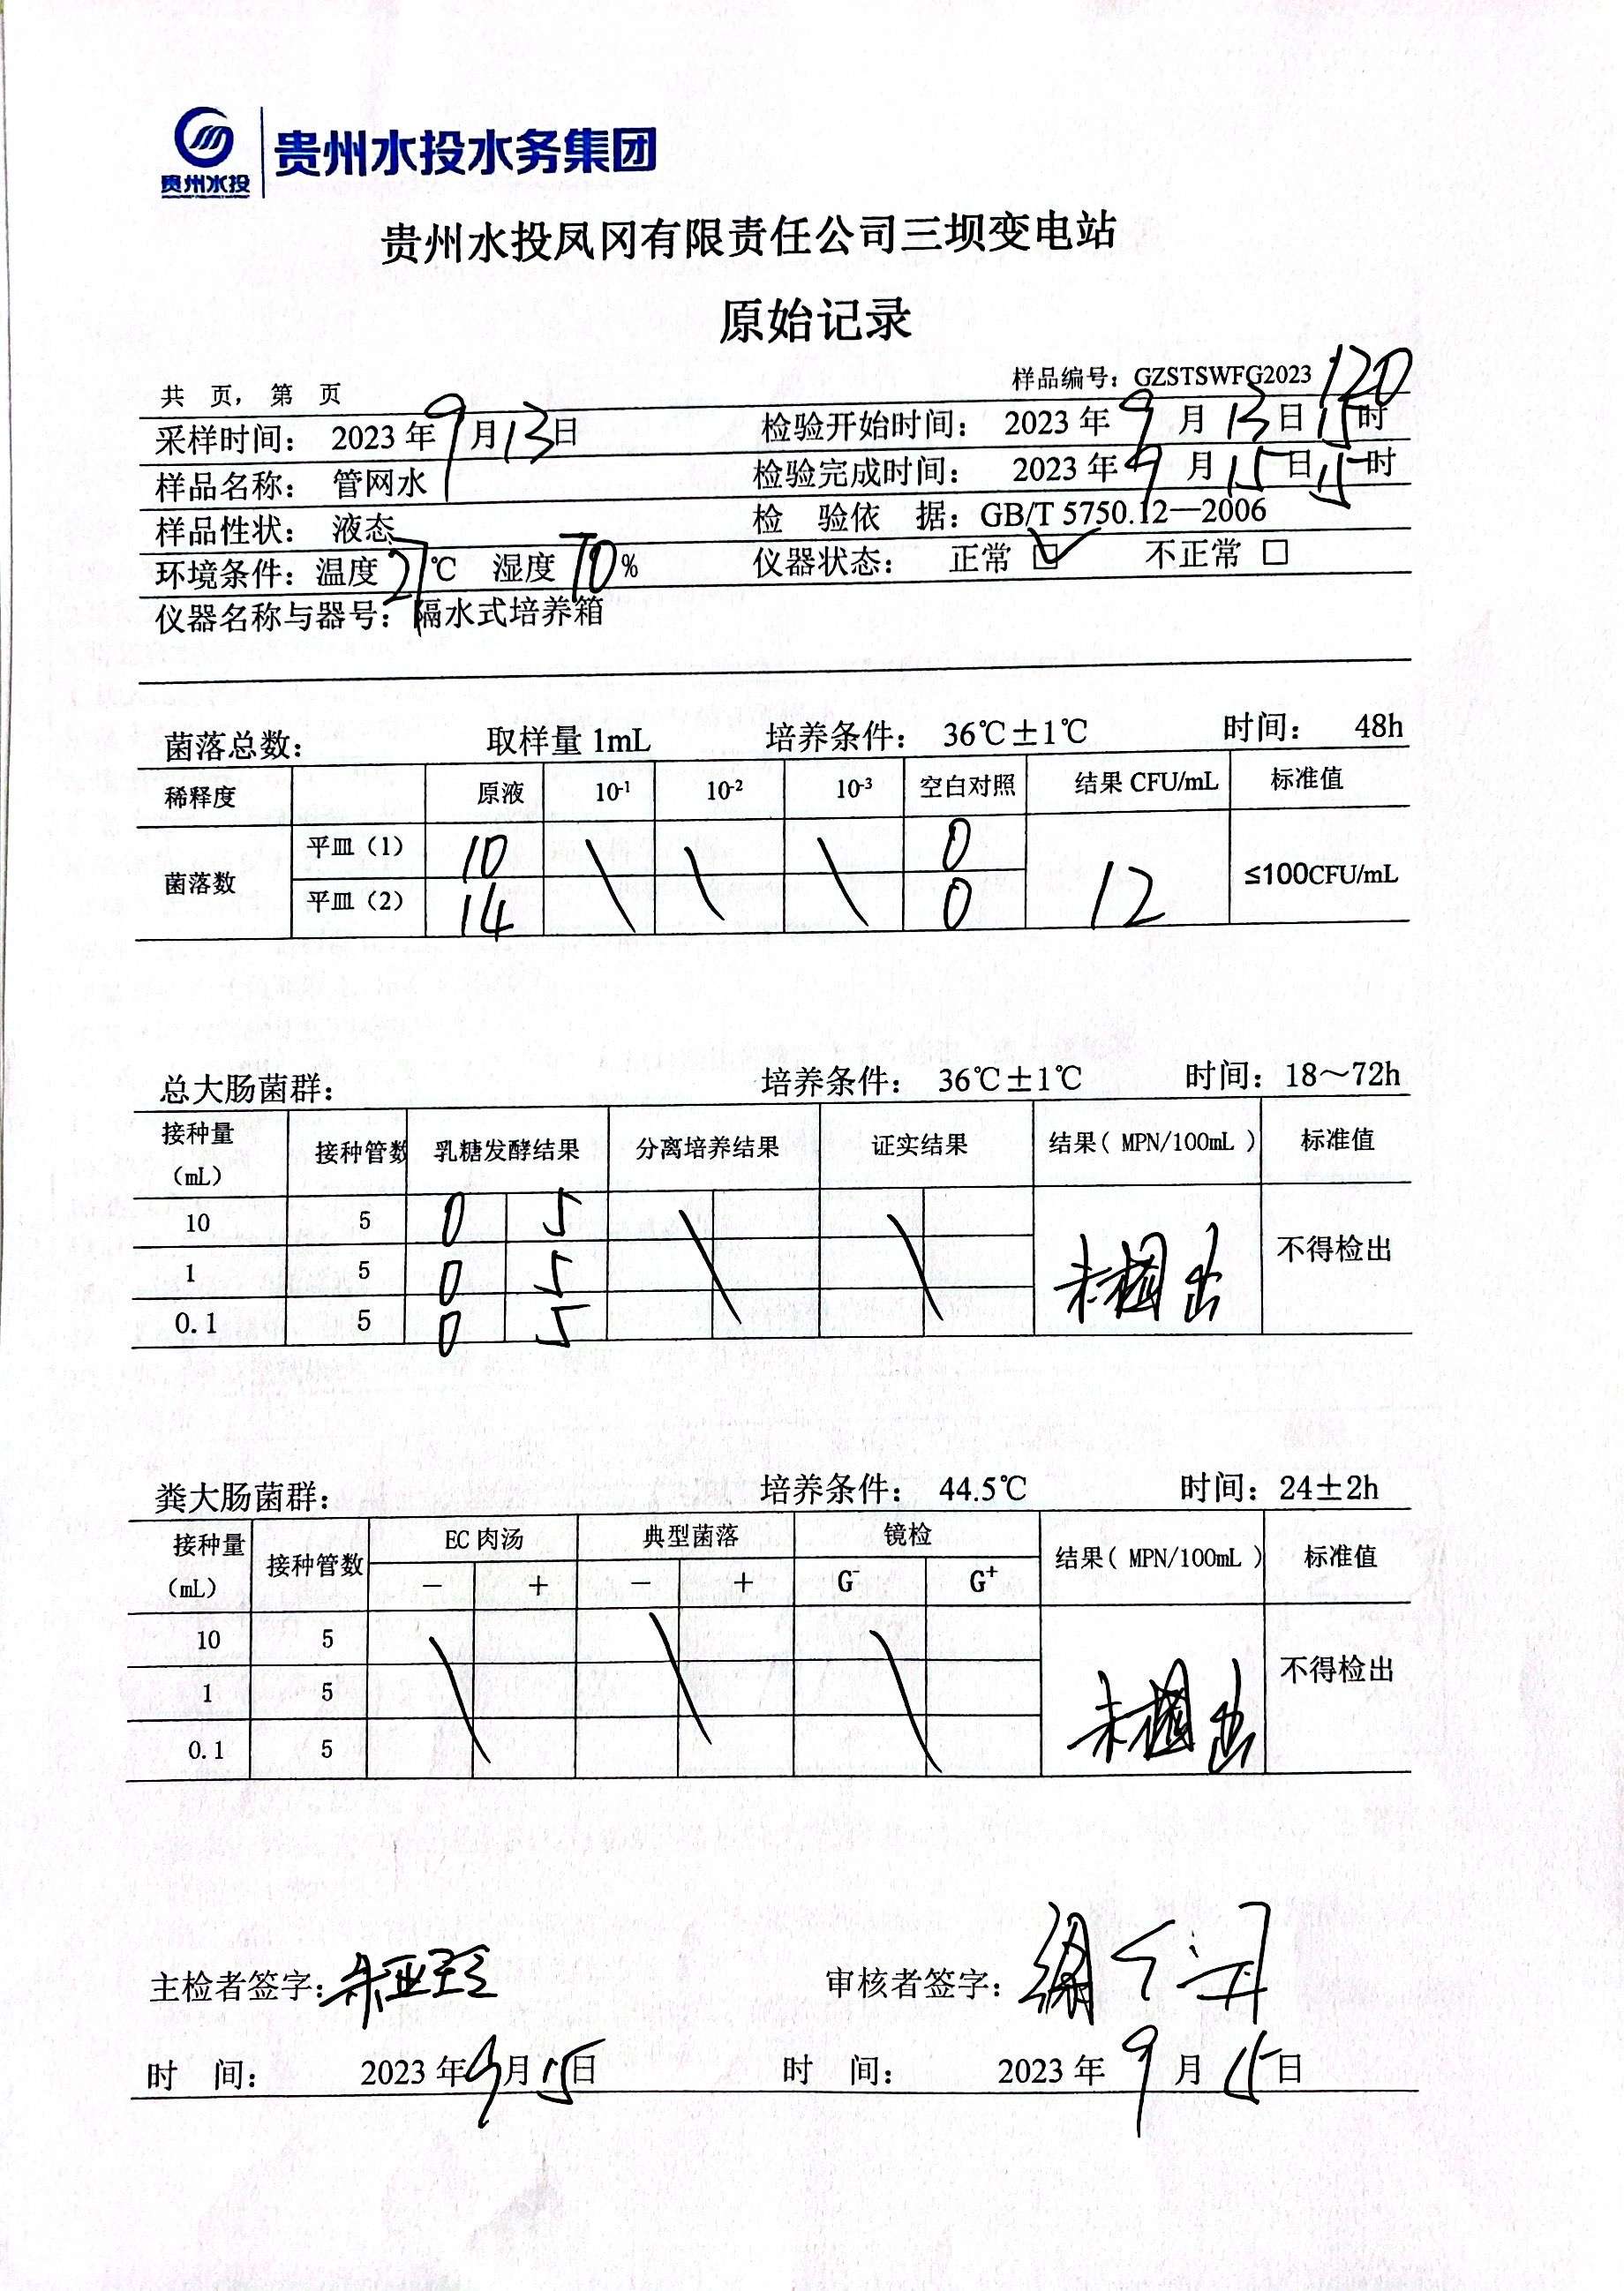 贵州水投
贵州水投水务集团
贵州水投凤冈有限责任公司三坝变电站
原始记录
共 页， 第 页 样品编号：GZSTSWFG2023120
采样时间： 2023年9月13日 检验开始时间： 2023年9月13日15时
样品名称： 管网水 检验完成时间： 2023年9月15日15时
样品性状： 液态 检 验依 据：GB/T 5750.12—2006
环境条件：温度27℃ 湿度70% 仪器状态： 正常☑ 不正常□
仪器名称与器号：隔水式培养箱
菌落总数： 取样量 1mL 培养条件： 36℃±1℃ 时间： 48h
稀释度 原液 10⁻¹ 10⁻² 10⁻³ 空白对照 结果 CFU/mL 标准值
菌落数 平皿（1） 10 \ \ \ 0 12 ≤100CFU/mL
平皿（2） 14 0
总大肠菌群： 培养条件： 36℃±1℃ 时间：18～72h
接种量（mL） 接种管数 乳糖发酵结果 分离培养结果 证实结果 结果（ MPN/100mL ） 标准值
10 5 0 5 \ \ 未检出 不得检出
1 5 0 5
0.1 5 0 5
粪大肠菌群： 培养条件： 44.5℃ 时间：24±2h
接种量（mL） 接种管数 EC 肉汤 典型菌落 镜检 结果（ MPN/100mL ） 标准值
－ ＋ － ＋ G⁻ G⁺
10 5 \ \ \ 未检出 不得检出
1 5
0.1 5
主检者签字： 审核者签字：
时 间： 2023年9月15日 时 间： 2023年9月15日